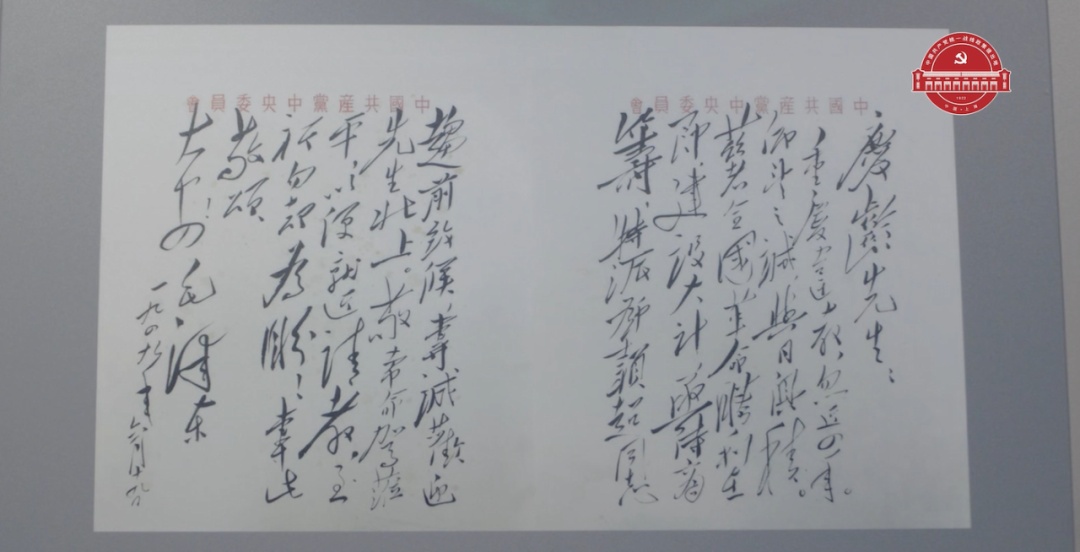 中國共産黨中央委員會
慶齡先生：
重慶違教，忽近四年。
仰望之誠，與日俱積。
兹者全國革命勝利在
即，建設大計，亟待商
籌，特派鄧穎超同志
中國共産黨中央委員會
趨前致候，專誠歡迎
先生北上。敬希命駕蒞
平，以便就近請教，至
祈勿却為盼！專此
敬頌
大安！
毛澤東
一九四九年六月十九日
中国·上海